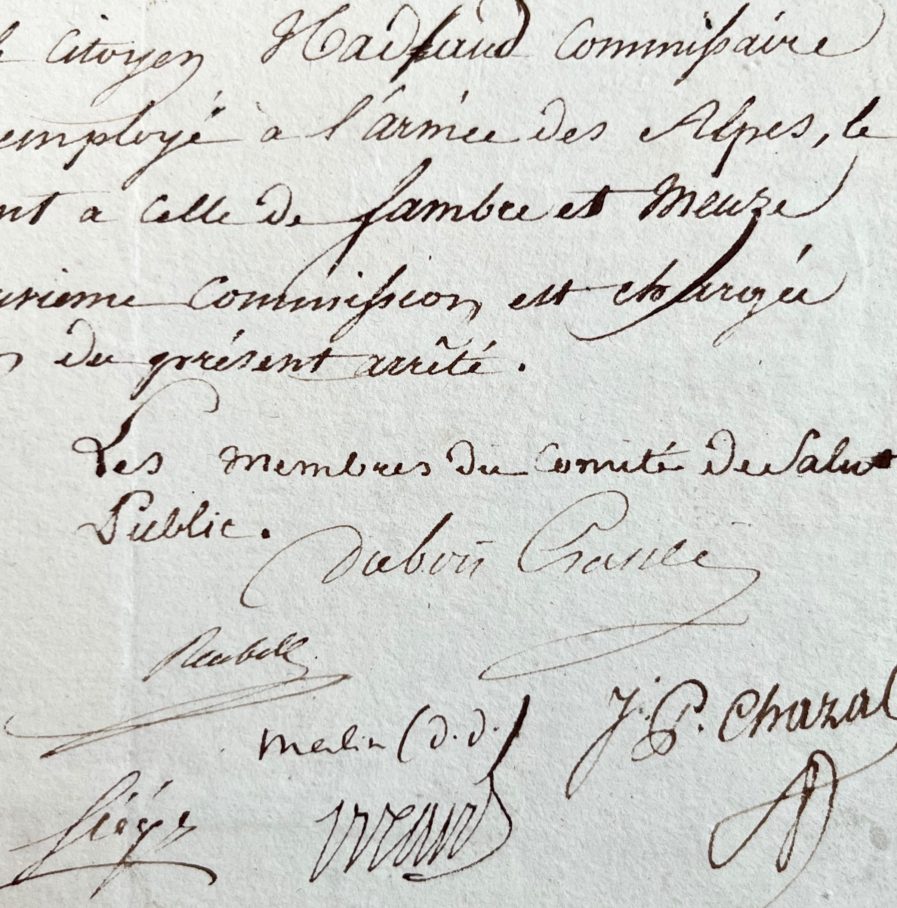 citoyen Hadfaud Commissaire
employé a l'armée des Alpes, le
nt a celle de Sambre et Meuze
urieme Commission est chargée
du présent arrêté.
Les membres du Comité de Salut
Public.
Dubois Crancé
Reubell
merlin (d.d.)
J. P. Chazal
Siéyes